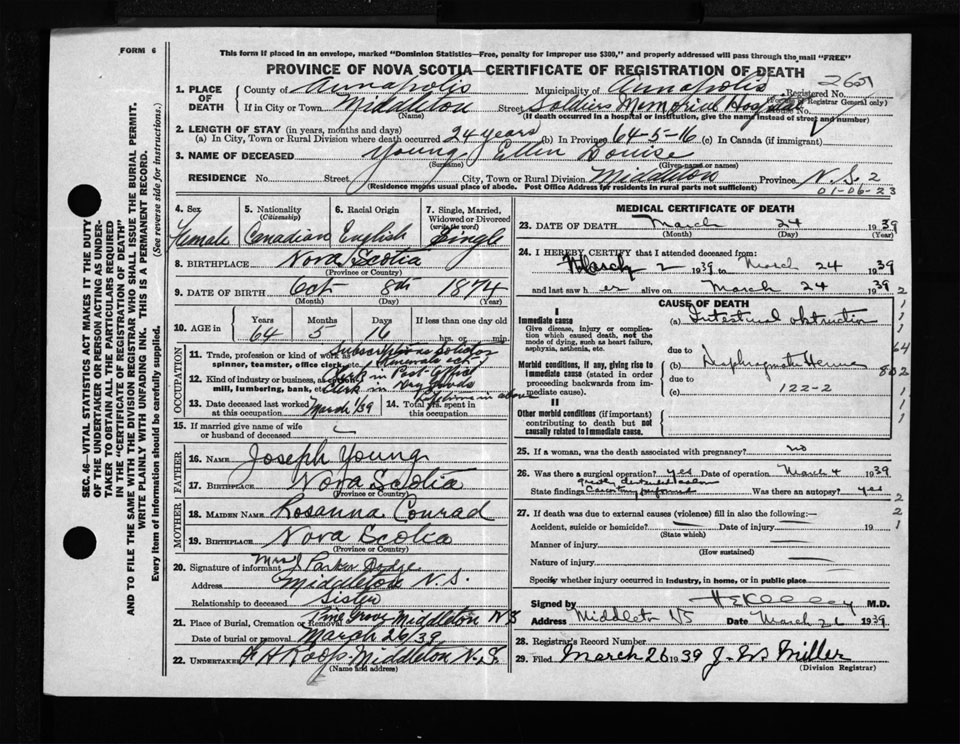 FORM 6
This form if placed in an envelope, marked "Dominion Statistics—Free, penalty for improper use $300," and properly addressed will pass through the mail "FREE"
PROVINCE OF NOVA SCOTIA—CERTIFICATE OF REGISTRATION OF DEATH
SEC. 46—VITAL STATISTICS ACT MAKES IT THE DUTY
OF THE UNDERTAKER OR PERSON ACTING AS UNDER-
TAKER TO OBTAIN ALL THE PARTICULARS REQUIRED
IN THE "CERTIFICATE OF REGISTRATION OF DEATH"
AND TO FILE THE SAME WITH THE DIVISION REGISTRAR WHO SHALL ISSUE THE BURIAL PERMIT.
WRITE PLAINLY WITH UNFADING INK. THIS IS A PERMANENT RECORD.
Every item of information should be carefully supplied. (See reverse side for instructions.)
1. PLACE OF DEATH County of Annapolis Municipality of Annapolis Registered No.
(For use of Registrar General only)
If in City or Town Middleton Street Soldiers Memorial Hospital No.
(Name) (If death occurred in a hospital or institution, give the name instead of street and number)
2. LENGTH OF STAY (in years, months and days)
(a) In City, Town or Rural Division where death occurred 24 years (b) In Province 64-5-16 (c) In Canada (if immigrant)
3. NAME OF DECEASED Young Ellen Louise
(Surname) (Given name or names)
RESIDENCE No. Street City, Town or Rural Division Middleton Province N.S. 2
(Residence means usual place of abode. Post Office Address for residents in rural parts not sufficient) 01-06-23
4. Sex Female
5. Nationality (Citizenship) Canadian
6. Racial Origin English
7. Single, Married, Widowed or Divorced (write the word) Single
8. BIRTHPLACE Nova Scotia
(Province or Country)
9. DATE OF BIRTH Oct 8th 1874
(Month) (Day) (Year)
10. AGE in Years Months Days If less than one day old
64 5 16 hrs. or min.
OCCUPATION
11. Trade, profession or kind of work as
spinner, teamster, office clerk, etc.
12. Kind of industry or business, as
mill, lumbering, bank, etc. Clerk in Dry Goods
Clerk in Post Office
13. Date deceased last worked at this occupation March/39
14. Total yrs. spent in this occupation
15. If married give name of wife or husband of deceased
FATHER
16. Name Joseph Young
17. Birthplace Nova Scotia
(Province or Country)
MOTHER
18. Maiden Name Rosanna Conrad
19. Birthplace Nova Scotia
(Province or Country)
20. Signature of informant Mrs J. Parker Dodge
Address Middleton N.S.
Relationship to deceased Sister
21. Place of Burial, Cremation or Removal Pine Grove Middleton N.S
Date of burial or removal March 26/39
22. Undertaker F A Roop Middleton N.S.
(Name and address)
MEDICAL CERTIFICATE OF DEATH
23. DATE OF DEATH March 24 1939
(Month) (Day) (Year)
24. I HEREBY CERTIFY that I attended deceased from:
March 2 1939 to March 24 1939
and last saw her alive on March 24 1939
CAUSE OF DEATH
I
Immediate cause
Give disease, injury or complication which caused death, not the mode of dying, such as heart failure, asphyxia, asthenia, etc.
(a) Intestinal obstruction
due to
Morbid conditions, if any, giving rise to immediate cause (stated in order proceeding backwards from immediate cause).
(b)
due to
(c) 122-2
II
Other morbid conditions (if important) contributing to death but not causally related to immediate cause.
25. If a woman, was the death associated with pregnancy? no
26. Was there a surgical operation? yes Date of operation March 4 1939
State findings Was there an autopsy? yes
27. If death was due to external causes (violence) fill in also the following:—
Accident, suicide or homicide? Date of injury 19
(State which)
Manner of injury
(How sustained)
Nature of injury
Specify whether injury occurred in industry, in home, or in public place
Signed by M.D.
Address Middleton NS Date March 26 1939
28. Registrar's Record Number
29. Filed March 26 1939 Miller
(Division Registrar)